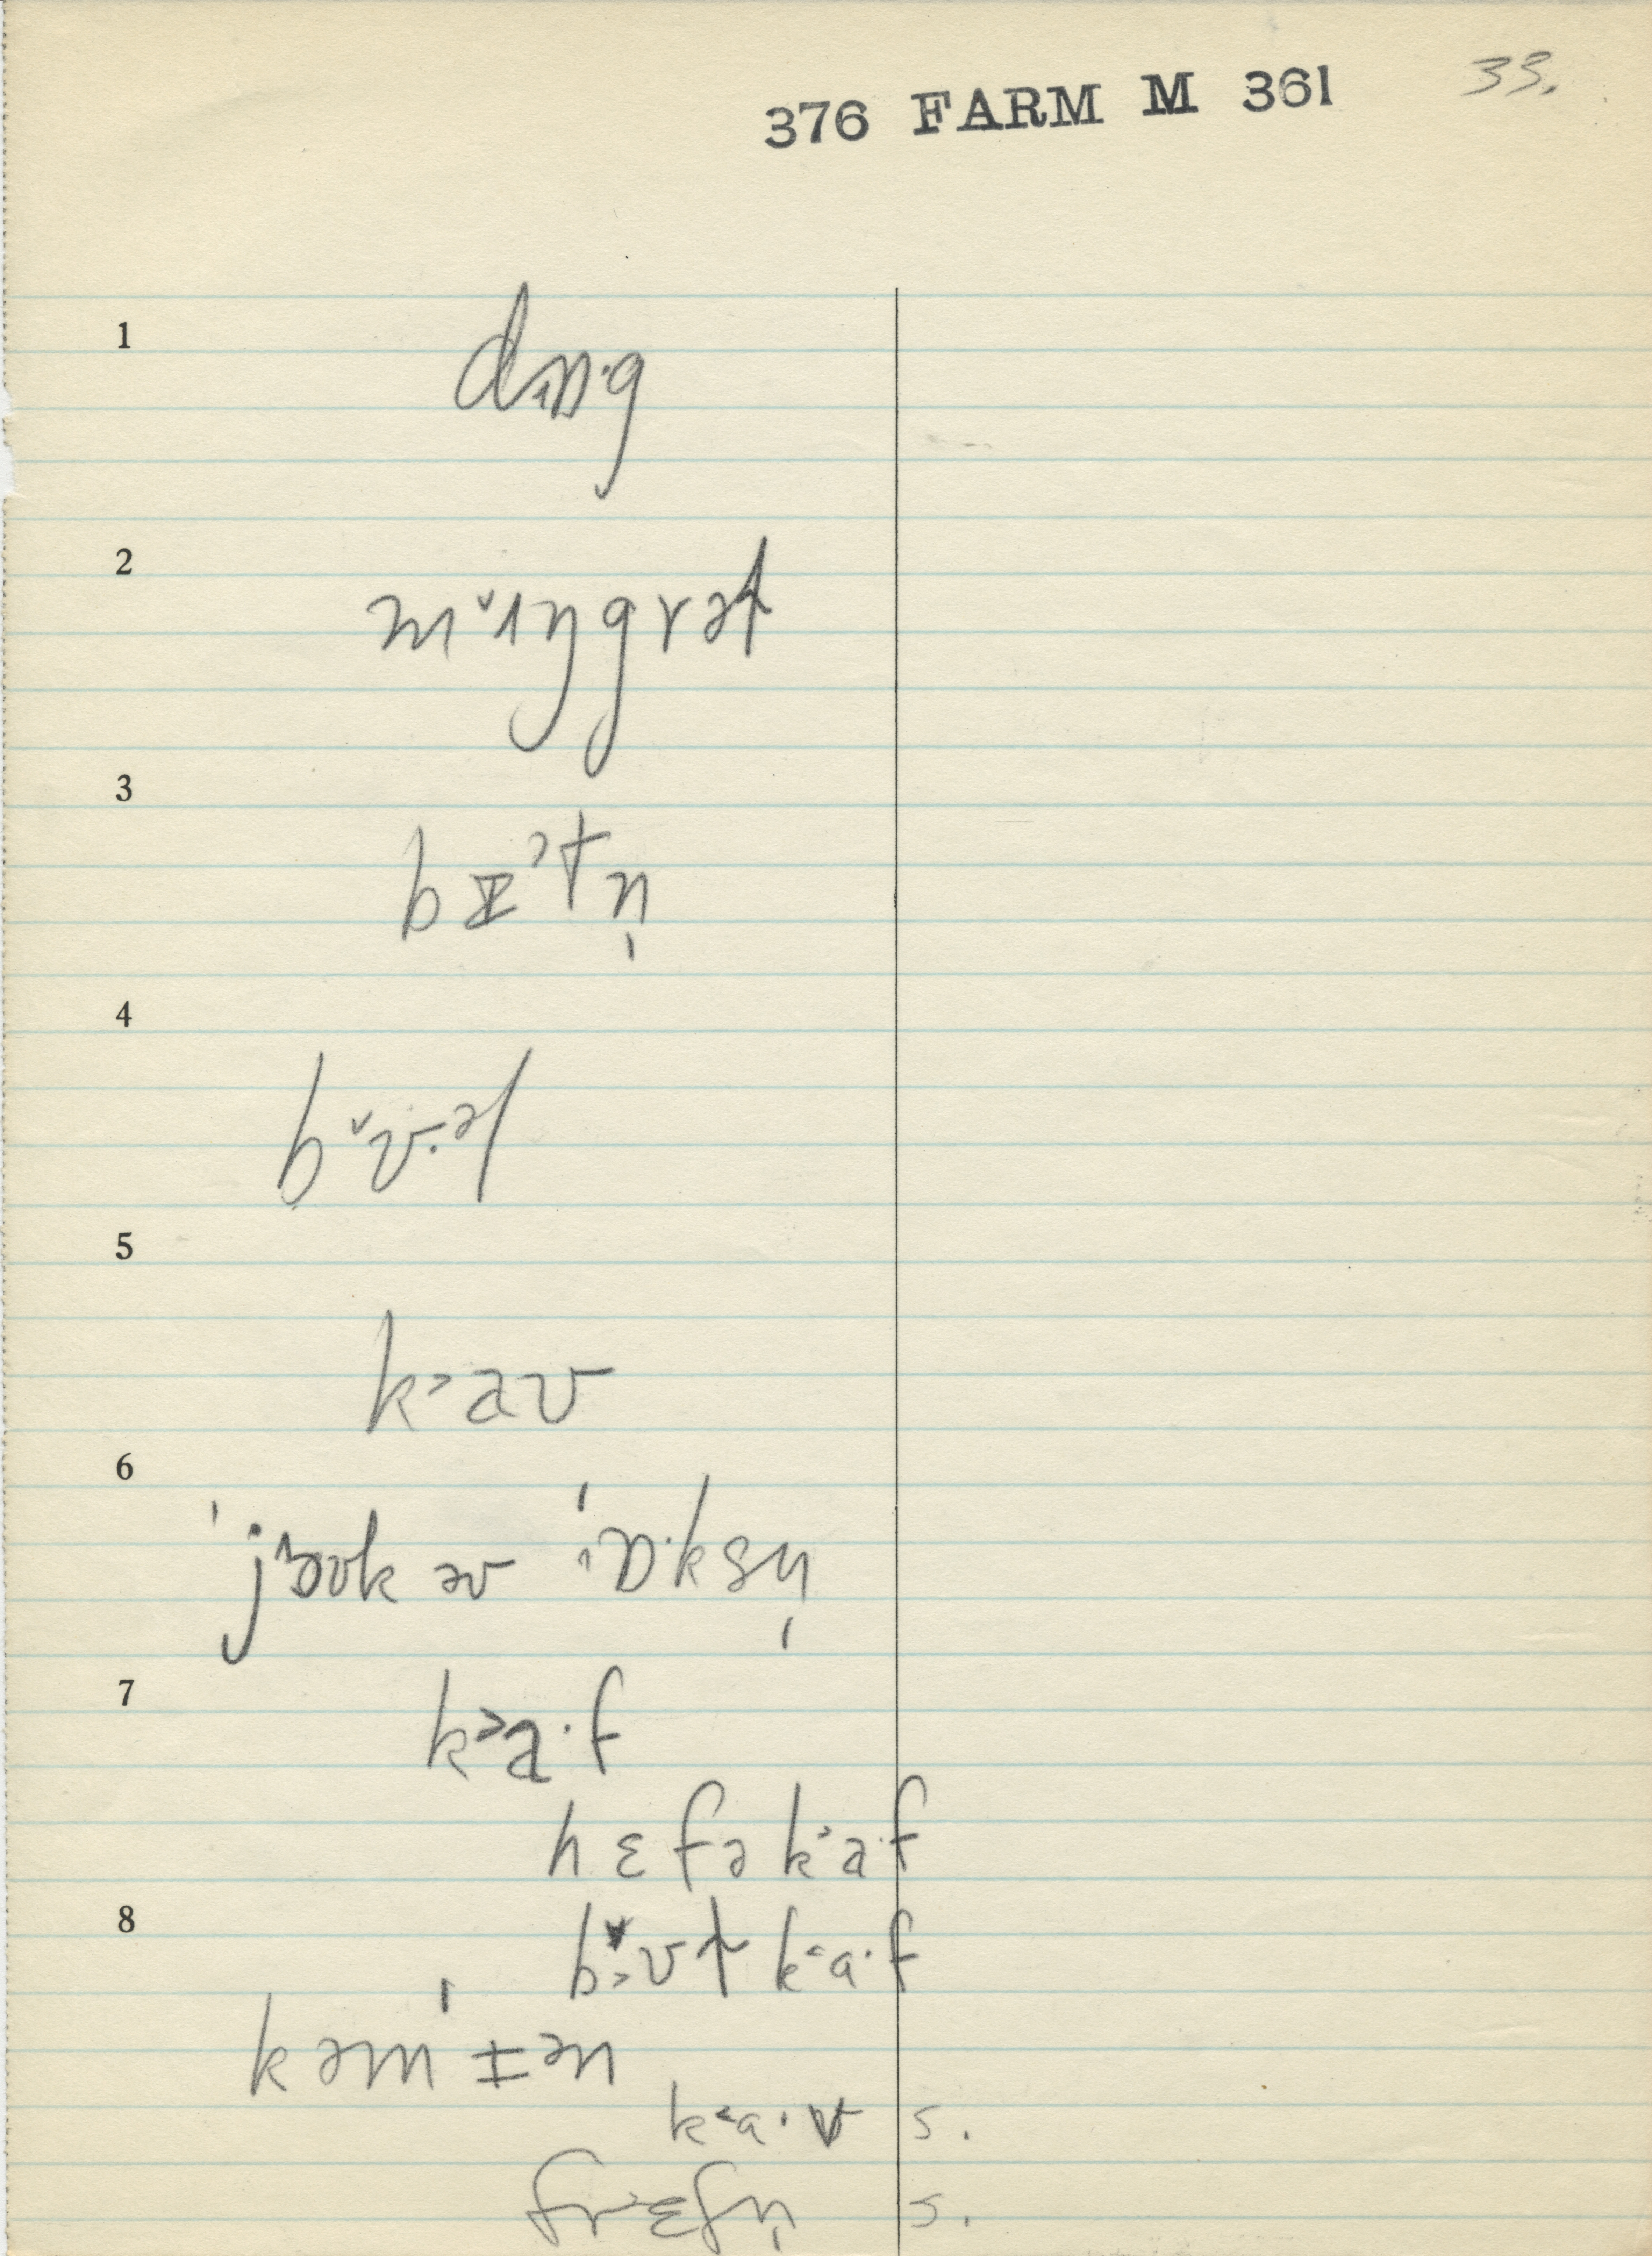 376 FARM M 361 33.
1
dɒ·g
2
m ˇɪŋgrət
3
b ᵻ ˃tn̩
4
b ˇʊ·əl
5
k ˃aʊ
6
ˈjoʊk əv ˈɒ·ksn̩
7
k ˃a·f
hɛfə k ˃a·f
8
bʊt k ˂a·f
kəmˈɪən
k ˂a·v s.
frɛʃn̩ s.